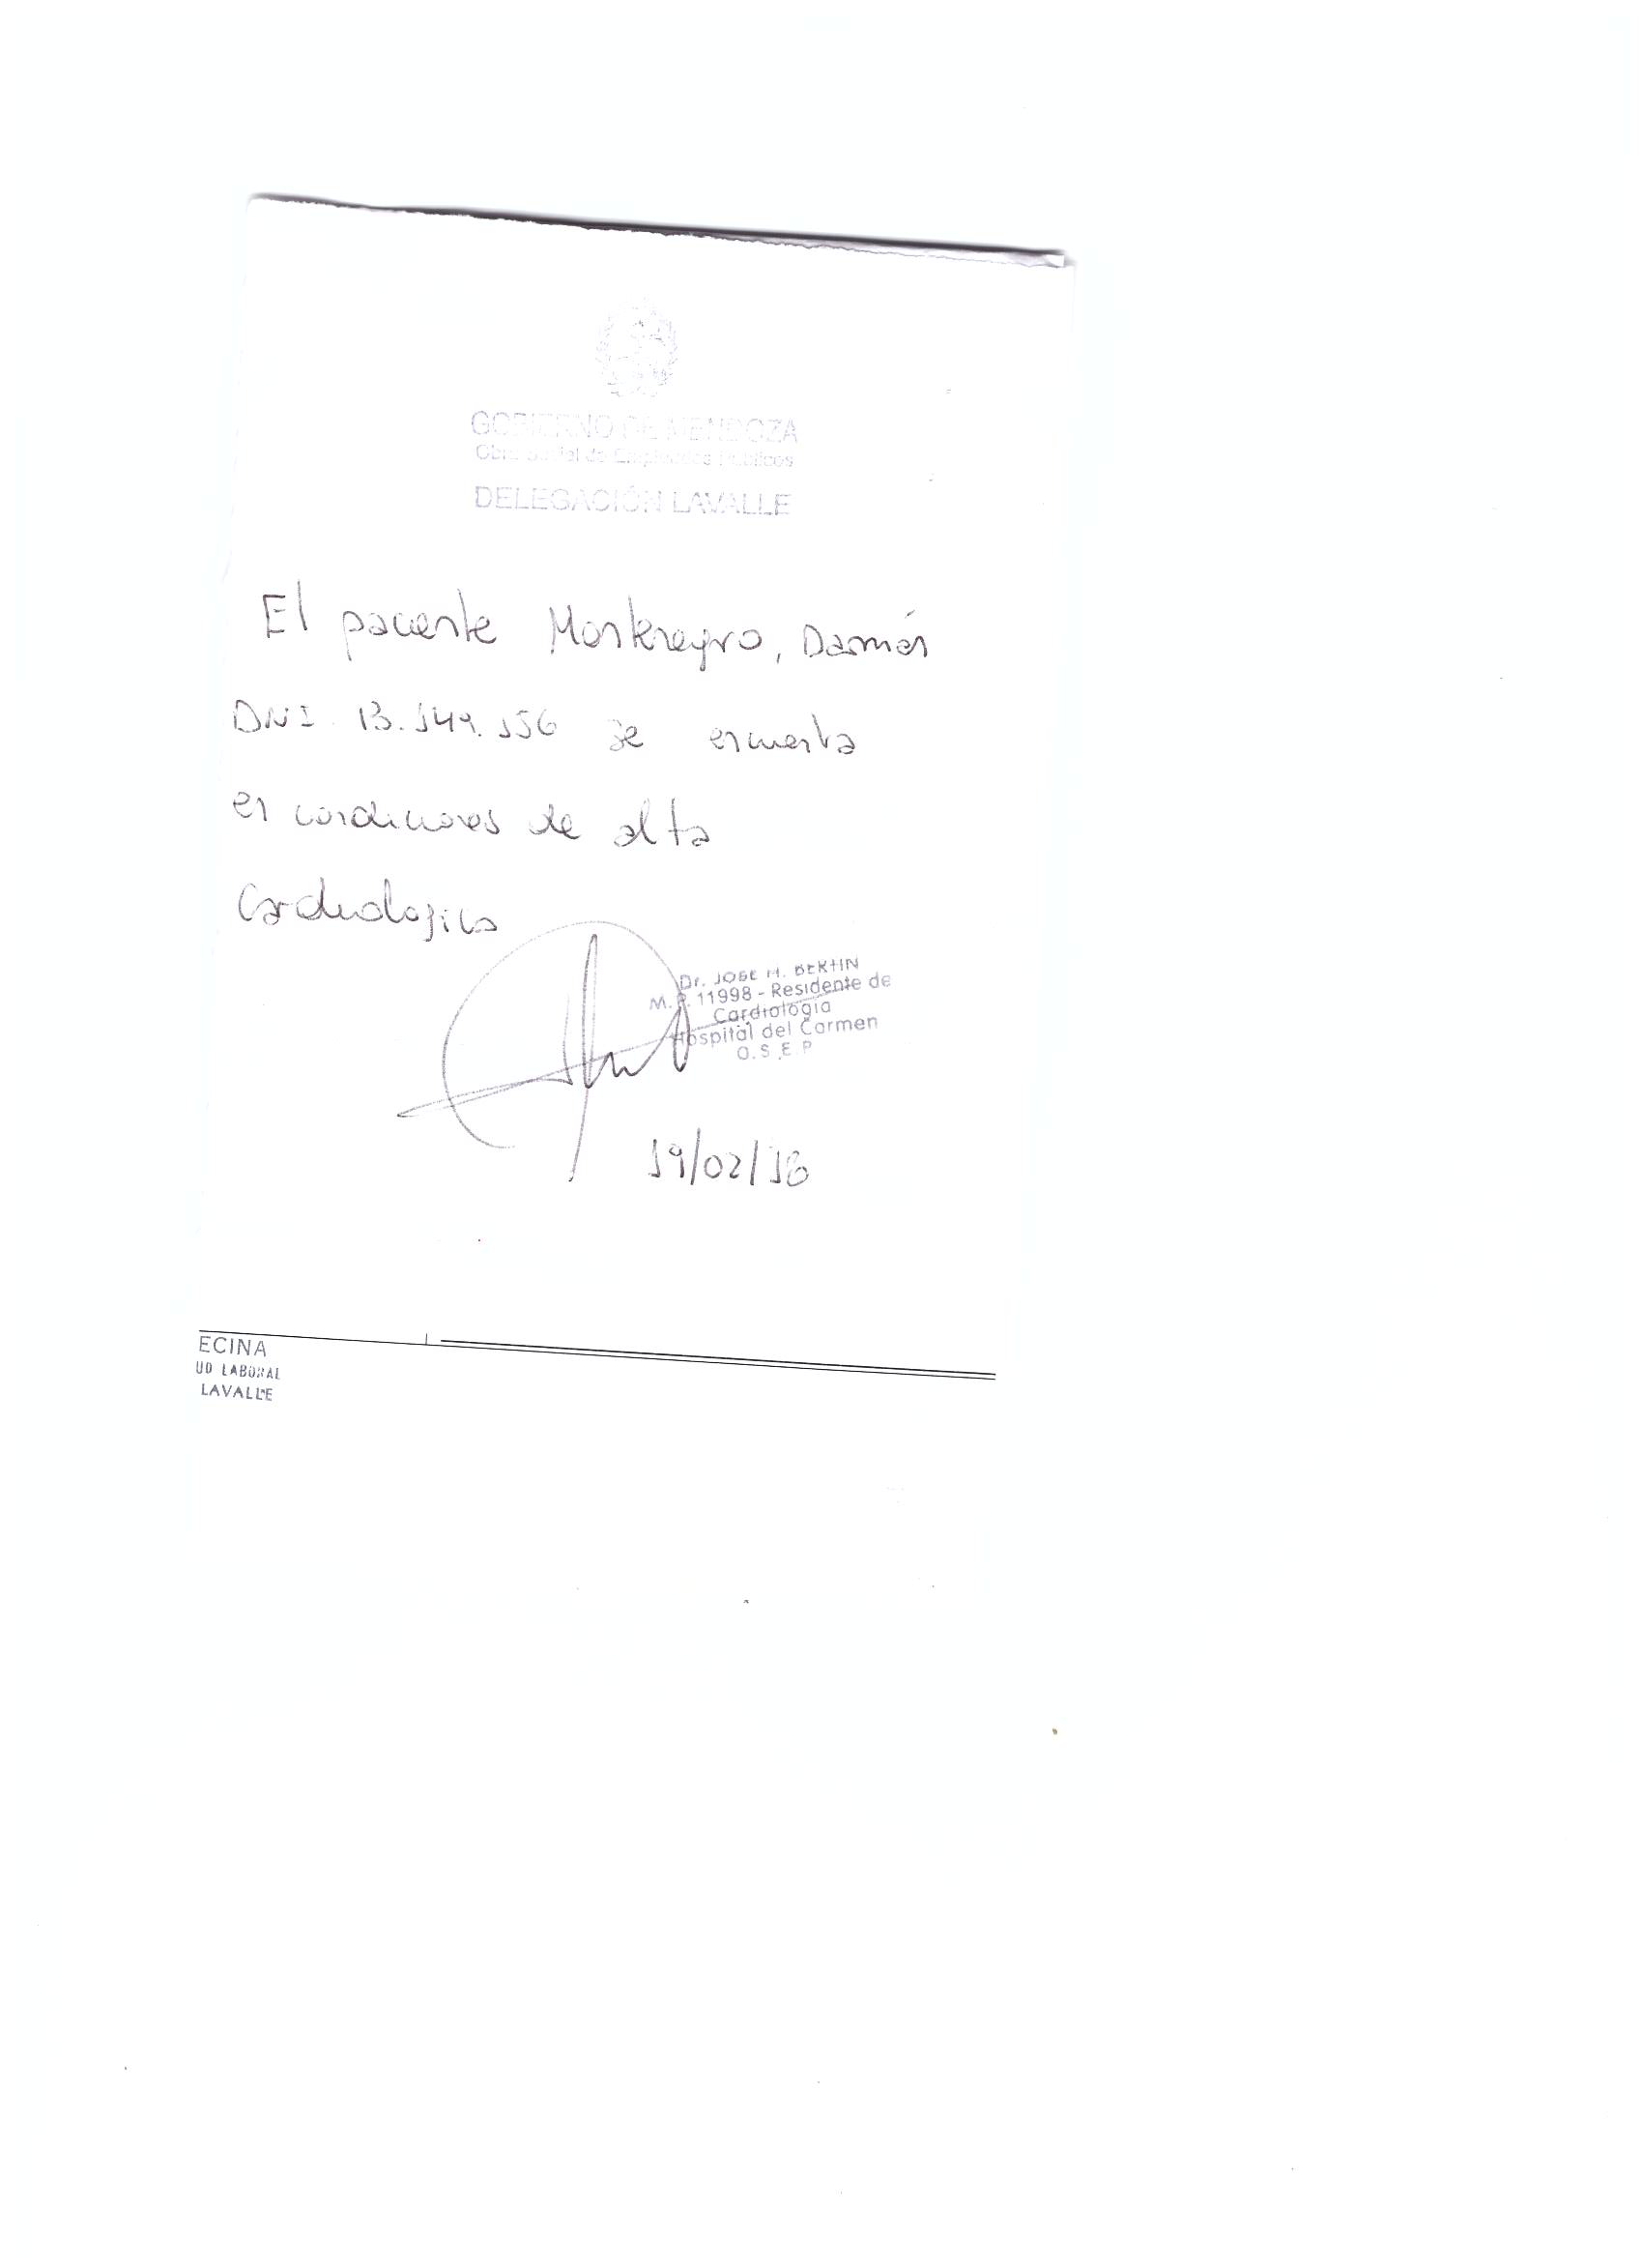 GOBIERNO DE MENDOZA
Obra Social de Empleados Públicos
DELEGACIÓN LAVALLE
El paciente Montenegro, Damián
DNI 13.149.156 se encuentra
en condiciones de alta
Cardiologica
Dr. JOSE M. BERTIN
M.P. 11998 - Residente de
Cardiología
Hospital del Carmen
O.S.E.P
19/02/18
ECINA
UD LABORAL
LAVALLE